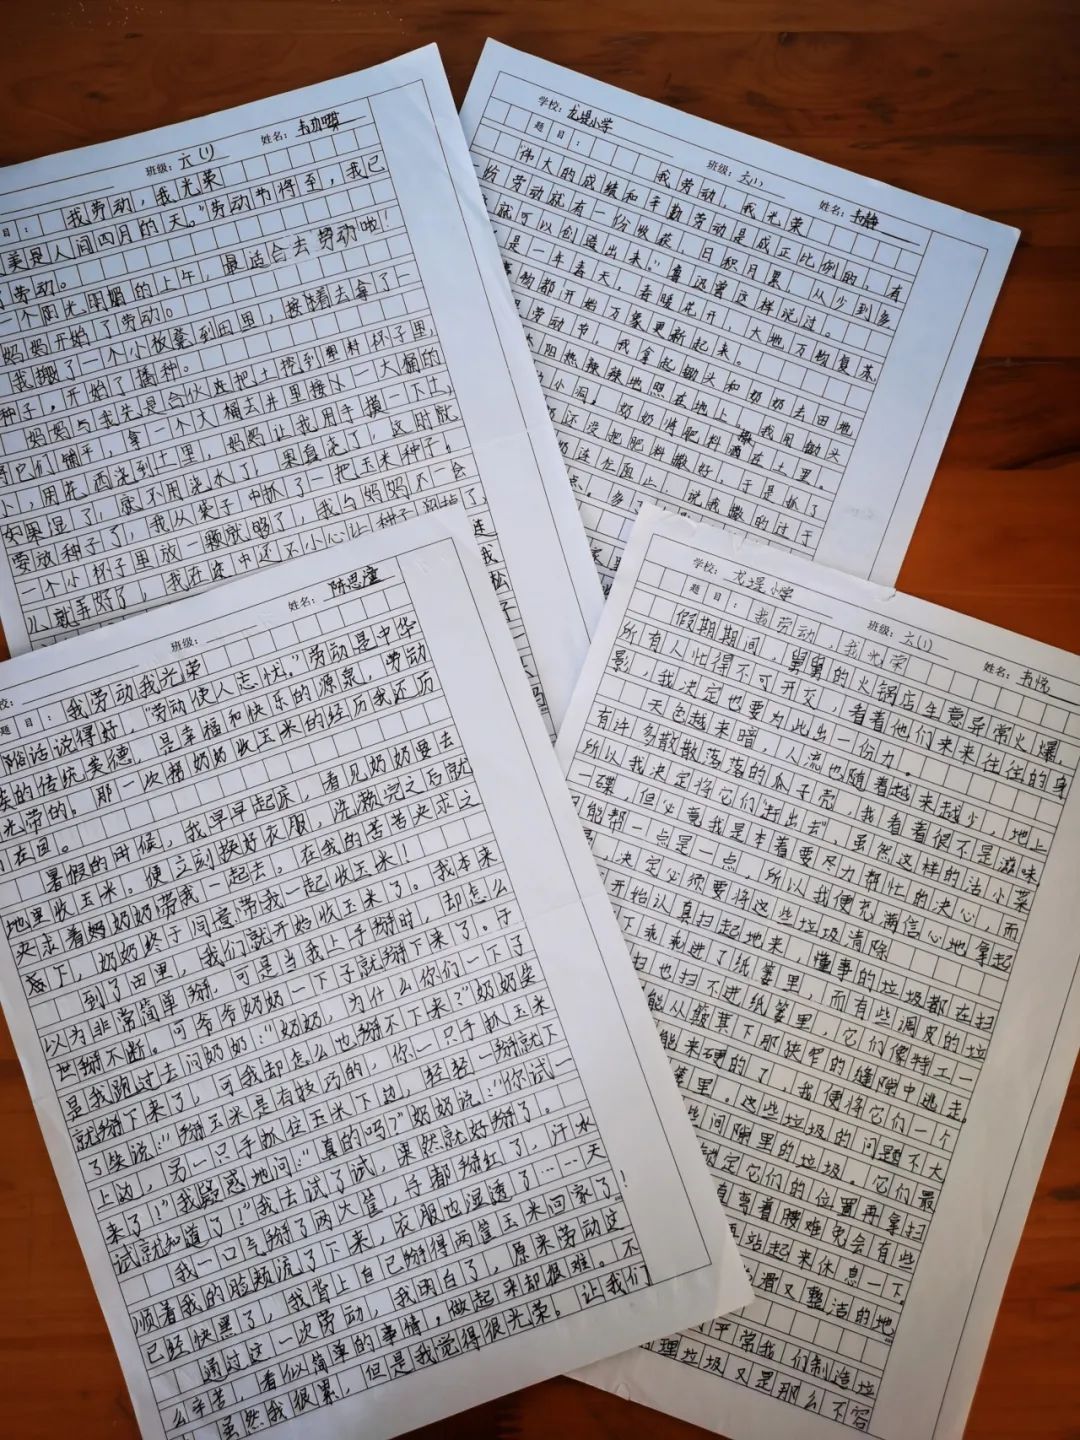 班级：六(1) 姓名：
目： 我劳动，我光荣
美是人间四月的天。"劳动节将至，我已
劳动。
一个阳光明媚的上午，最适合去劳动啦！
妈妈开始了劳动。
我搬了一个小板凳到田里，接着去拿了一
种子，开始了播种。
妈妈与我先是合伙把土挖到塑料杯子里，
它们铺平，拿一个大桶去井里接一大桶的
，用东西浇到土里，妈妈让我用手摸一下土，
如果湿了，就不用浇水了，果真浇了，这时就
要放种子了，我从袋子中抓了一把玉米种子。
一个小杯子里放一颗就够了，我与妈妈不一会
儿就弄好了，我在途中还不小心让种子
学校：龙堤小学 班级：六(1) 姓名：韦静
题目： 我劳动，我光荣
伟大的成绩和辛勤劳动是成正比例的，有
份劳动就有一份收获，日积月累，从少到多
就可以创造出来。"鲁迅曾这样说过。
是一年春天，春暖花开，大地万物复苏
物都开始万象更新起来。
劳动节，我拿起锄头和奶奶去田地
阳热辣辣地照在地上，我用锄头
小洞。奶奶将肥料洒在土里。
还没把肥料撒好，于是抓了
奶连忙阻止，说我撒的过于
校： 班级： 姓名：陈思潼
题目：我劳动我光荣
俗话说得好，"劳动使人忘忧。"劳动是中华
的传统美德，是幸福和快乐的源泉，劳动
光荣的。那一次帮奶奶收玉米的经历我还历
在目。
暑假的时候，我早早起床，看见奶奶要去
地里收玉米。便立刻换好衣服，洗漱完之后就
央求着奶奶带我一起去。在我的苦苦央求之
下，奶奶终于同意带我一起收玉米！
到了田里，我们就开始收玉米了。我本来
以为非常简单掰，可是当我上手掰时，却怎么
也掰不断。可爷爷奶奶一下子就掰下来了。于
是我跑过去问奶奶："奶奶，为什么你们一下子
就掰下来了，可我却怎么也掰不下来？"奶奶笑
了笑说："掰玉米是有技巧的，你一只手抓玉米
上边，另一只手抓住玉米下边，轻轻一掰就下
来了！"我疑惑地问："真的吗？"奶奶说："你试一
试就知道了！"我去试了试，果然就好掰了。
我一口气掰了两大筐，手都掰红了，汗水
顺着我的脸颊流了下来，衣服也湿透了……天
已经快黑了，我背上自己掰得两筐玉米回家了！
通过这一次劳动，我明白了，原来劳动这
么辛苦，看似简单的事情，做起来却很难。不
虽然我很累，但是我觉得很光荣。让我们
学校：龙堤小学 班级：六(1) 姓名：韦悦
题目：我劳动，我光荣
假期期间，舅舅的火锅店生意异常火爆，
所有人忙得不可开交，看着他们来来往往的身
影，我决定也要为此出一份力。
天色越来暗，人流也随着越来越少，地上
有许多散散落落的瓜子壳，我看着很不是滋味，
所以我决定将它们"赶出去"，虽然这样的活小菜
一碟，但必竟我是本着要尽力帮忙的决心，而
能帮一点是一点，所以我便充满信心地拿起
，决定必须要将这些垃圾清除
开始认真扫起地来，懂事的垃圾都在扫
下乖乖进了纸篓里，而有些调皮的垃
扫也扫不进纸篓里，它们像特工一
能从簸箕下那狭窄的缝隙中逃走。
能来硬的了，我便将它们一个
篓里。这些垃圾的问题不大
些间隙里的垃圾。它们最
锁定它们的位置再拿扫
弯着腰难免会有些
站起来休息一下。
滑又整洁的地
平常我们制造垃
理垃圾又是那么不容